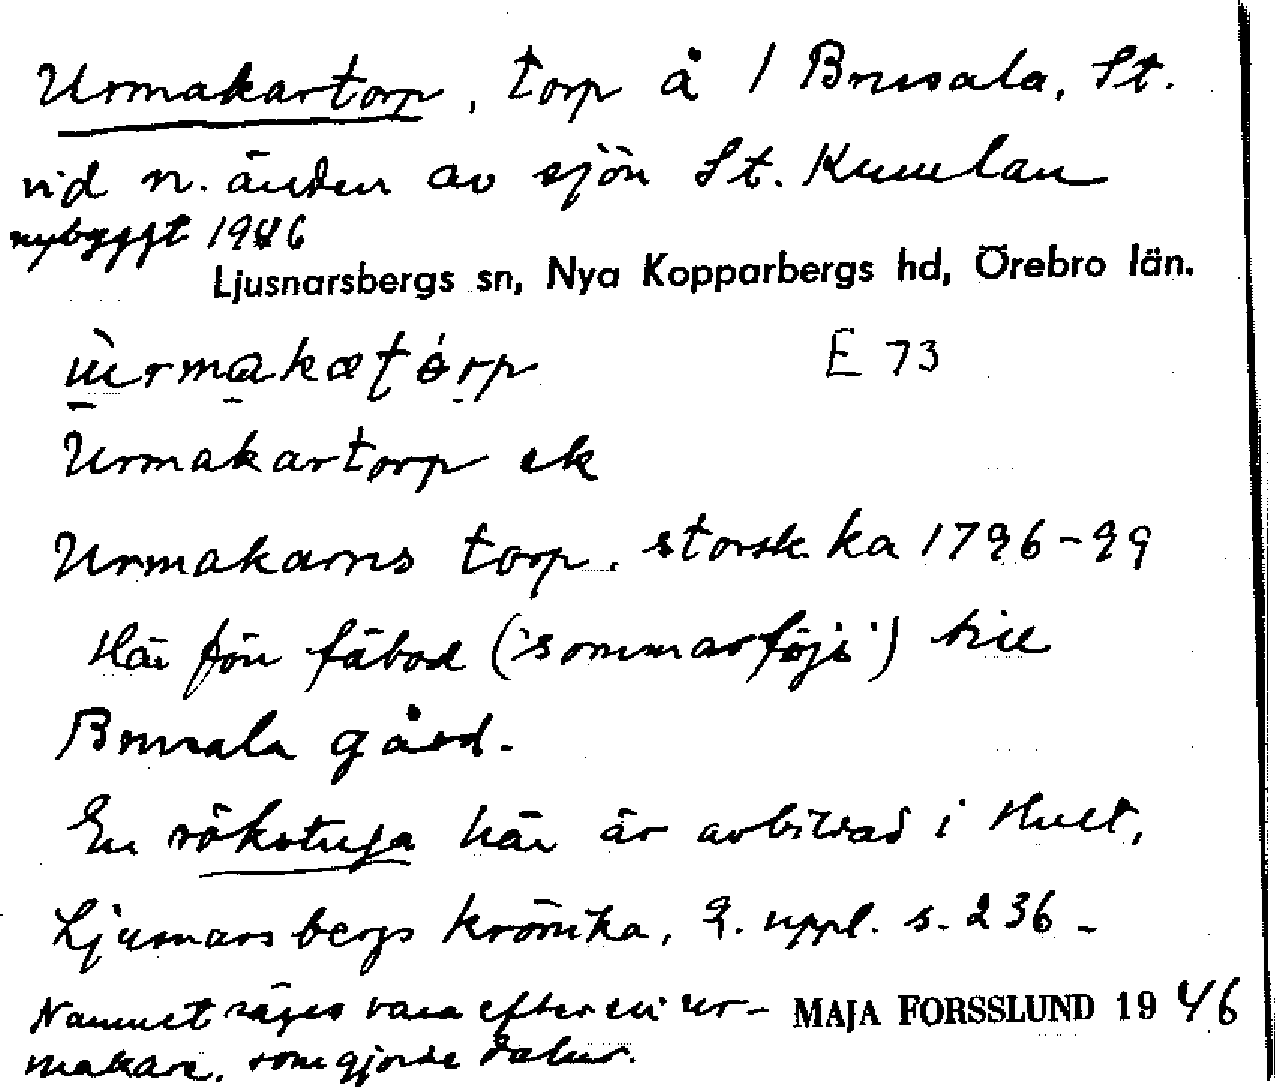 Urmakartorp, torp å 1 Brusala, St.
vid n. änden av sjön St. Kumlan
nybyggt 1946
Ljusnarsbergs sn, Nya Kopparbergs hd, Örebro län.
E 73
Urmakartorp ek
Urmakarns torp. storsk. ka 1796-99
Här förr fäbod ('sommarföjs') till
Brusala gård.
En rökstuga här är avbildad i Hult,
Ljusnarsbergs krönika, 2. uppl. s. 236 -
Namnet säges vara efter en ur- MAJA FORSSLUND 1946
makare, som gjorde dalur.